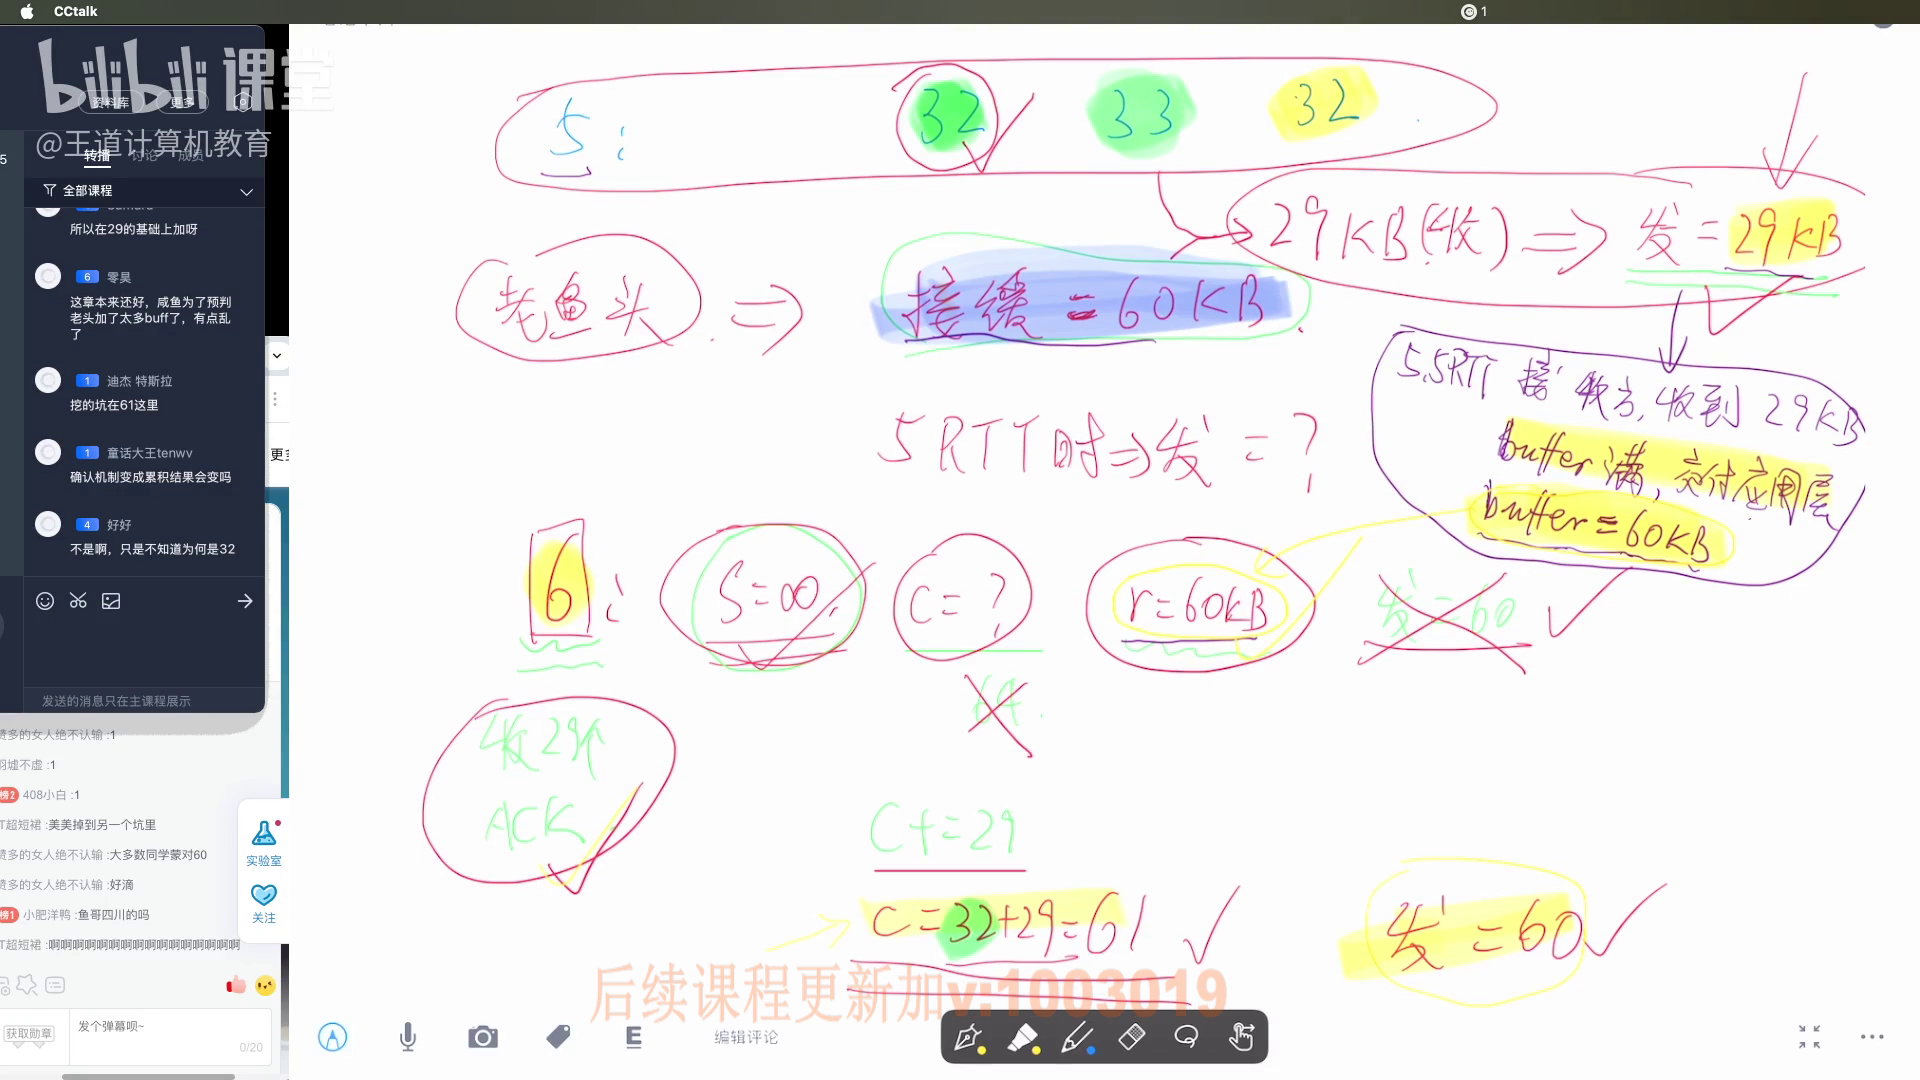 CCtalk
1
bilibili 课堂
资料库 更多
@王道计算机教育
转播 讨论 成员
5
全部课程
所以在29的基础上加呀
6 零昊
这章本来还好，咸鱼为了预判
老头加了太多buff了，有点乱
了
1 迪杰 特斯拉
挖的坑在61这里
1 童话大王tenwv
确认机制变成累积结果会变吗
4 好好
不是啊，只是不知道为何是32
发送的消息只在主课程展示
赞多的女人绝不认输 :1
羽墟不虚 :1
榜2 408小白 :1
T超短裙 :美美掉到另一个坑里
赞多的女人绝不认输 :大多数同学蒙对60
赞多的女人绝不认输 :好滴
榜1 小肥洋鸭 :鱼哥四川的吗
T超短裙 :啊啊啊啊啊啊啊啊啊啊啊啊啊啊啊啊
实验室
关注
获取勋章
发个弹幕呗~
0/20
5: 32 33 32
29KB(收) => 发=29KB
老鱼头 => 接缓=60KB
5.5RTT 接收方,收到29KB
buffer满,交付应用层
buffer=60KB
5RTT时=>发=?
6: S=∞ C=? r=60KB 发=60
64
收29个
ACK
C+=29
C=32+29=61
发=60
后续课程更新加v:1003019
编辑评论